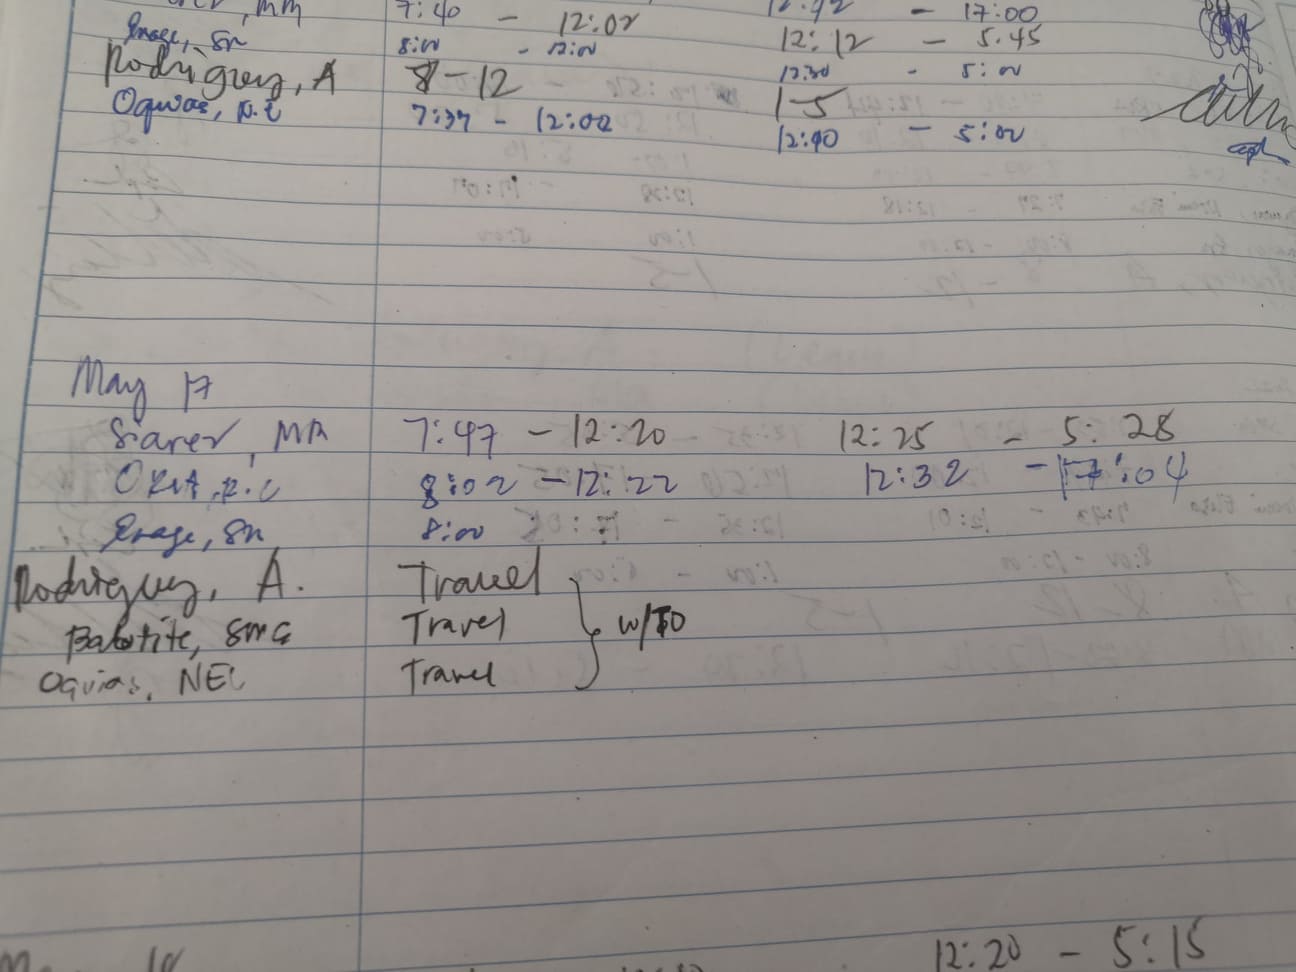 MM 7:40 - 12:02 12:42 - 17:00
Enage, SN 8:00 - 12:00 12:12 - 5:45
Rodriguez, A 8-12 12:30 - 5:00
Oquias, N.E 7:37 - 12:00 1-5
12:40 - 5:00
May 17
Siarez, MM 7:47 - 12:20 12:25 - 5:28
8:02 - 12:22 12:32 - 17:04
Enage, SN 8:00
Rodriguez, A. Travel
Babatite, SMG Travel w/TO
Oquias, NEC Travel
12:20 - 5:15